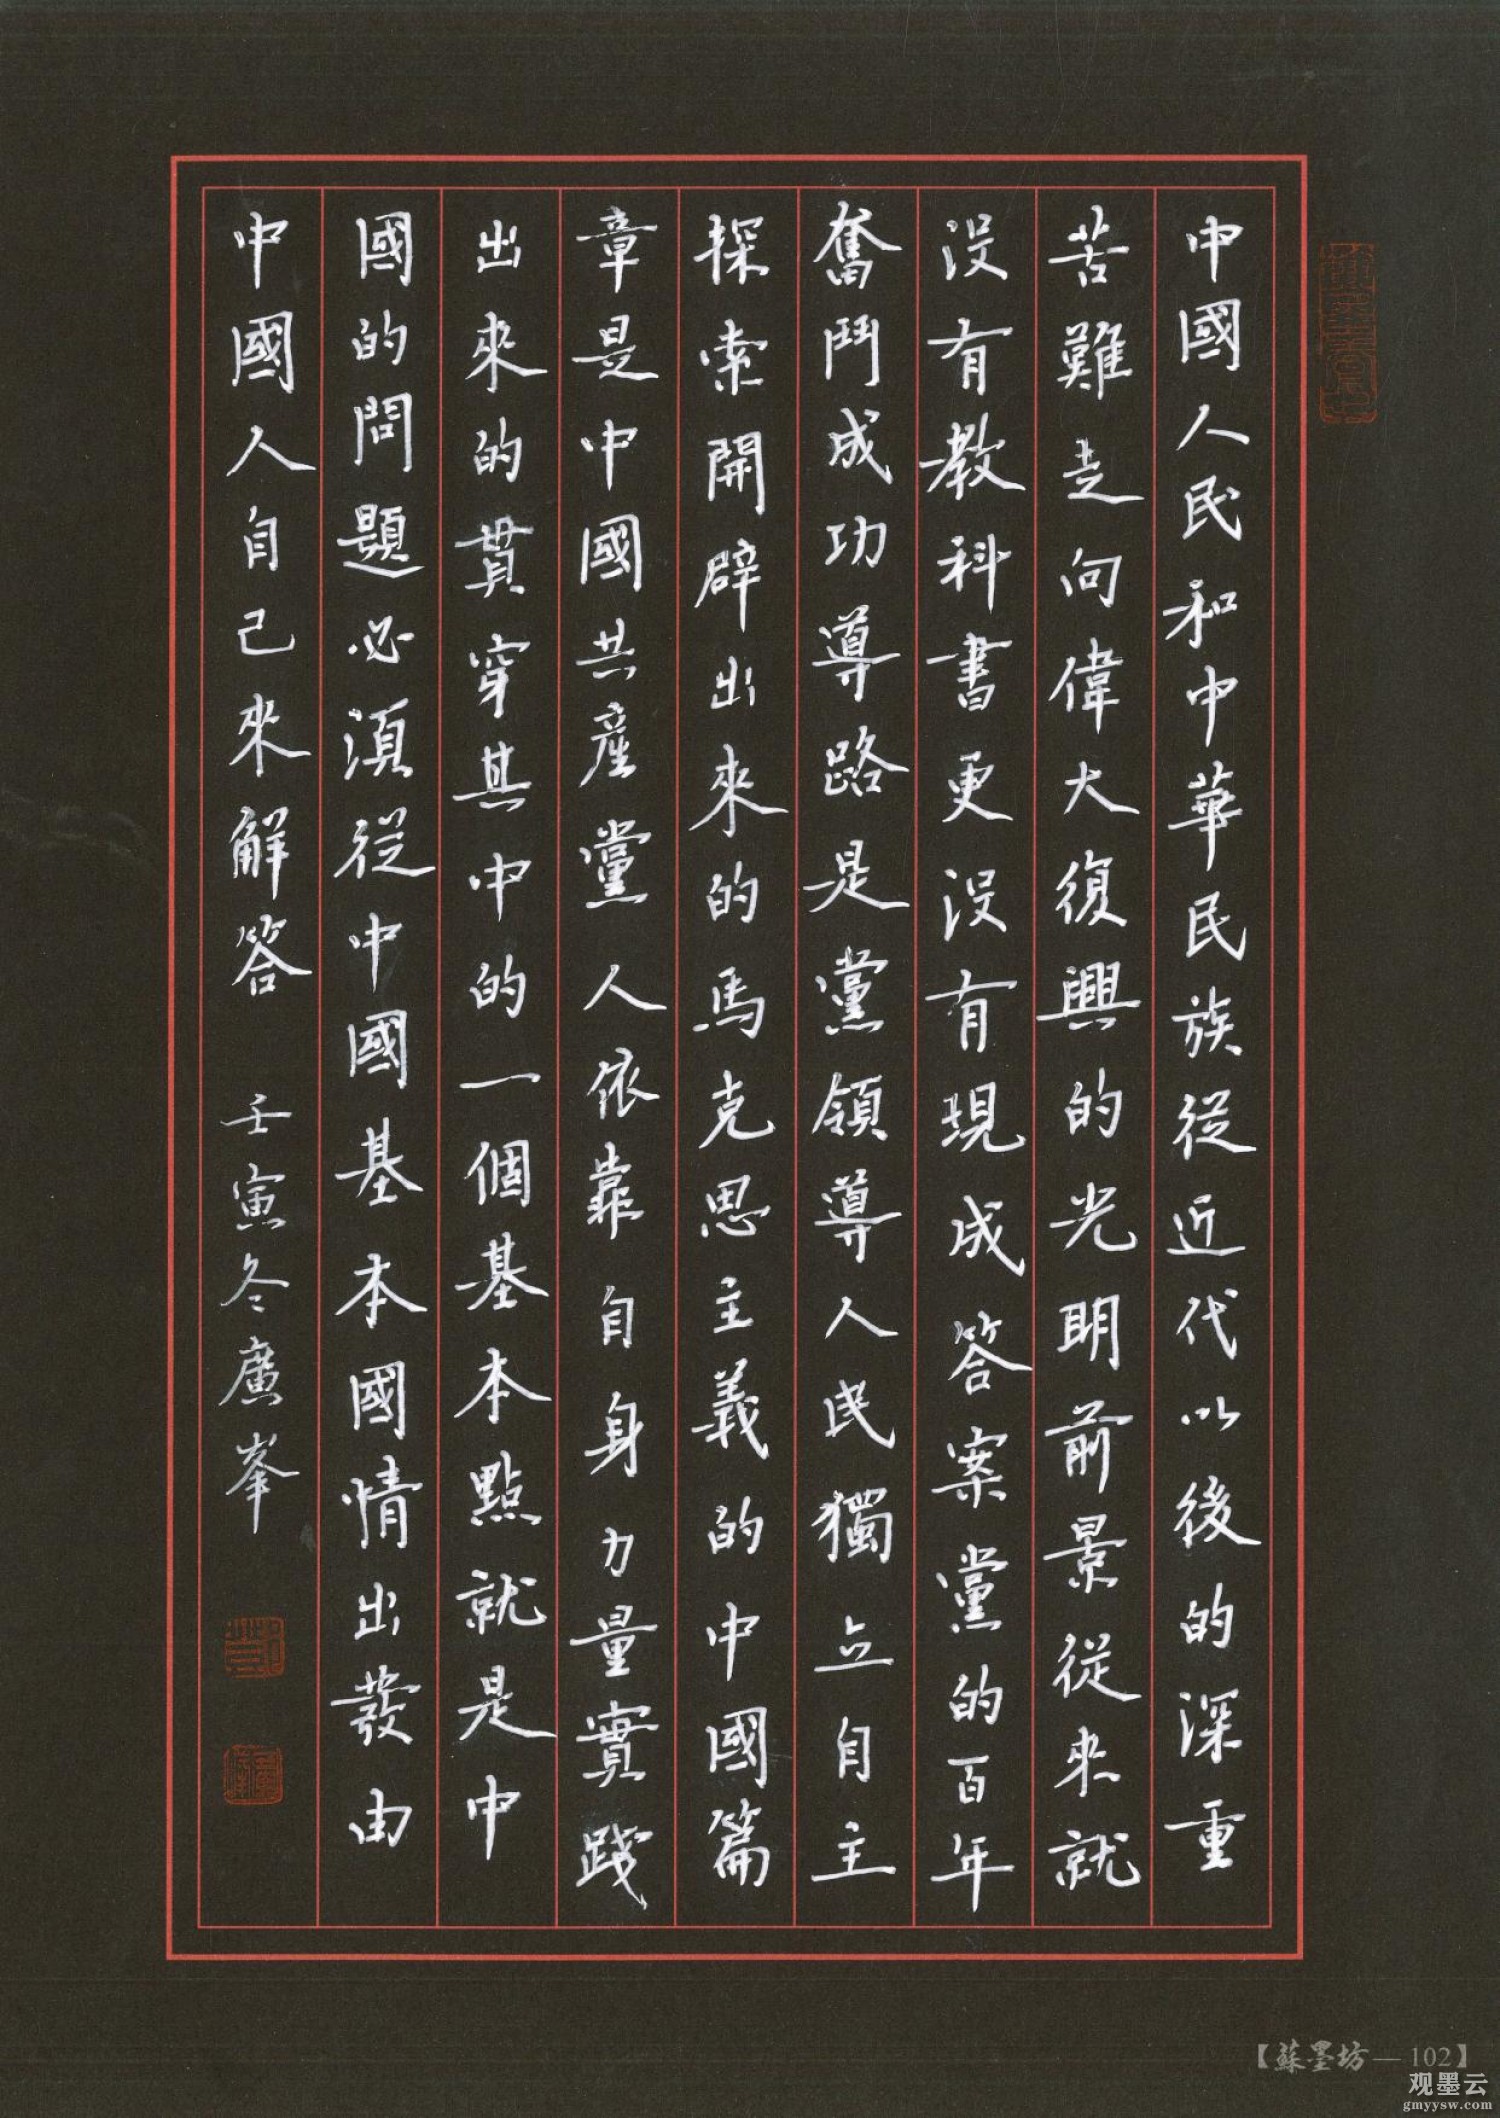 中國人民和中華民族從近代以後的深重
苦難走向偉大復興的光明前景從來就
没有教科書更没有現成答案黨的百年
奮鬥成功導路是黨領導人民獨立自主
探索開辟出來的馬克思主義的中國篇
章是中國共産黨人依靠自身力量實踐
出來的貫穿其中的一個基本點就是中
國的問題必須從中國基本國情出發由
中國人自己來解答 壬寅冬廣峯
【蘇墨坊—102】
观墨云
gmyysw.com